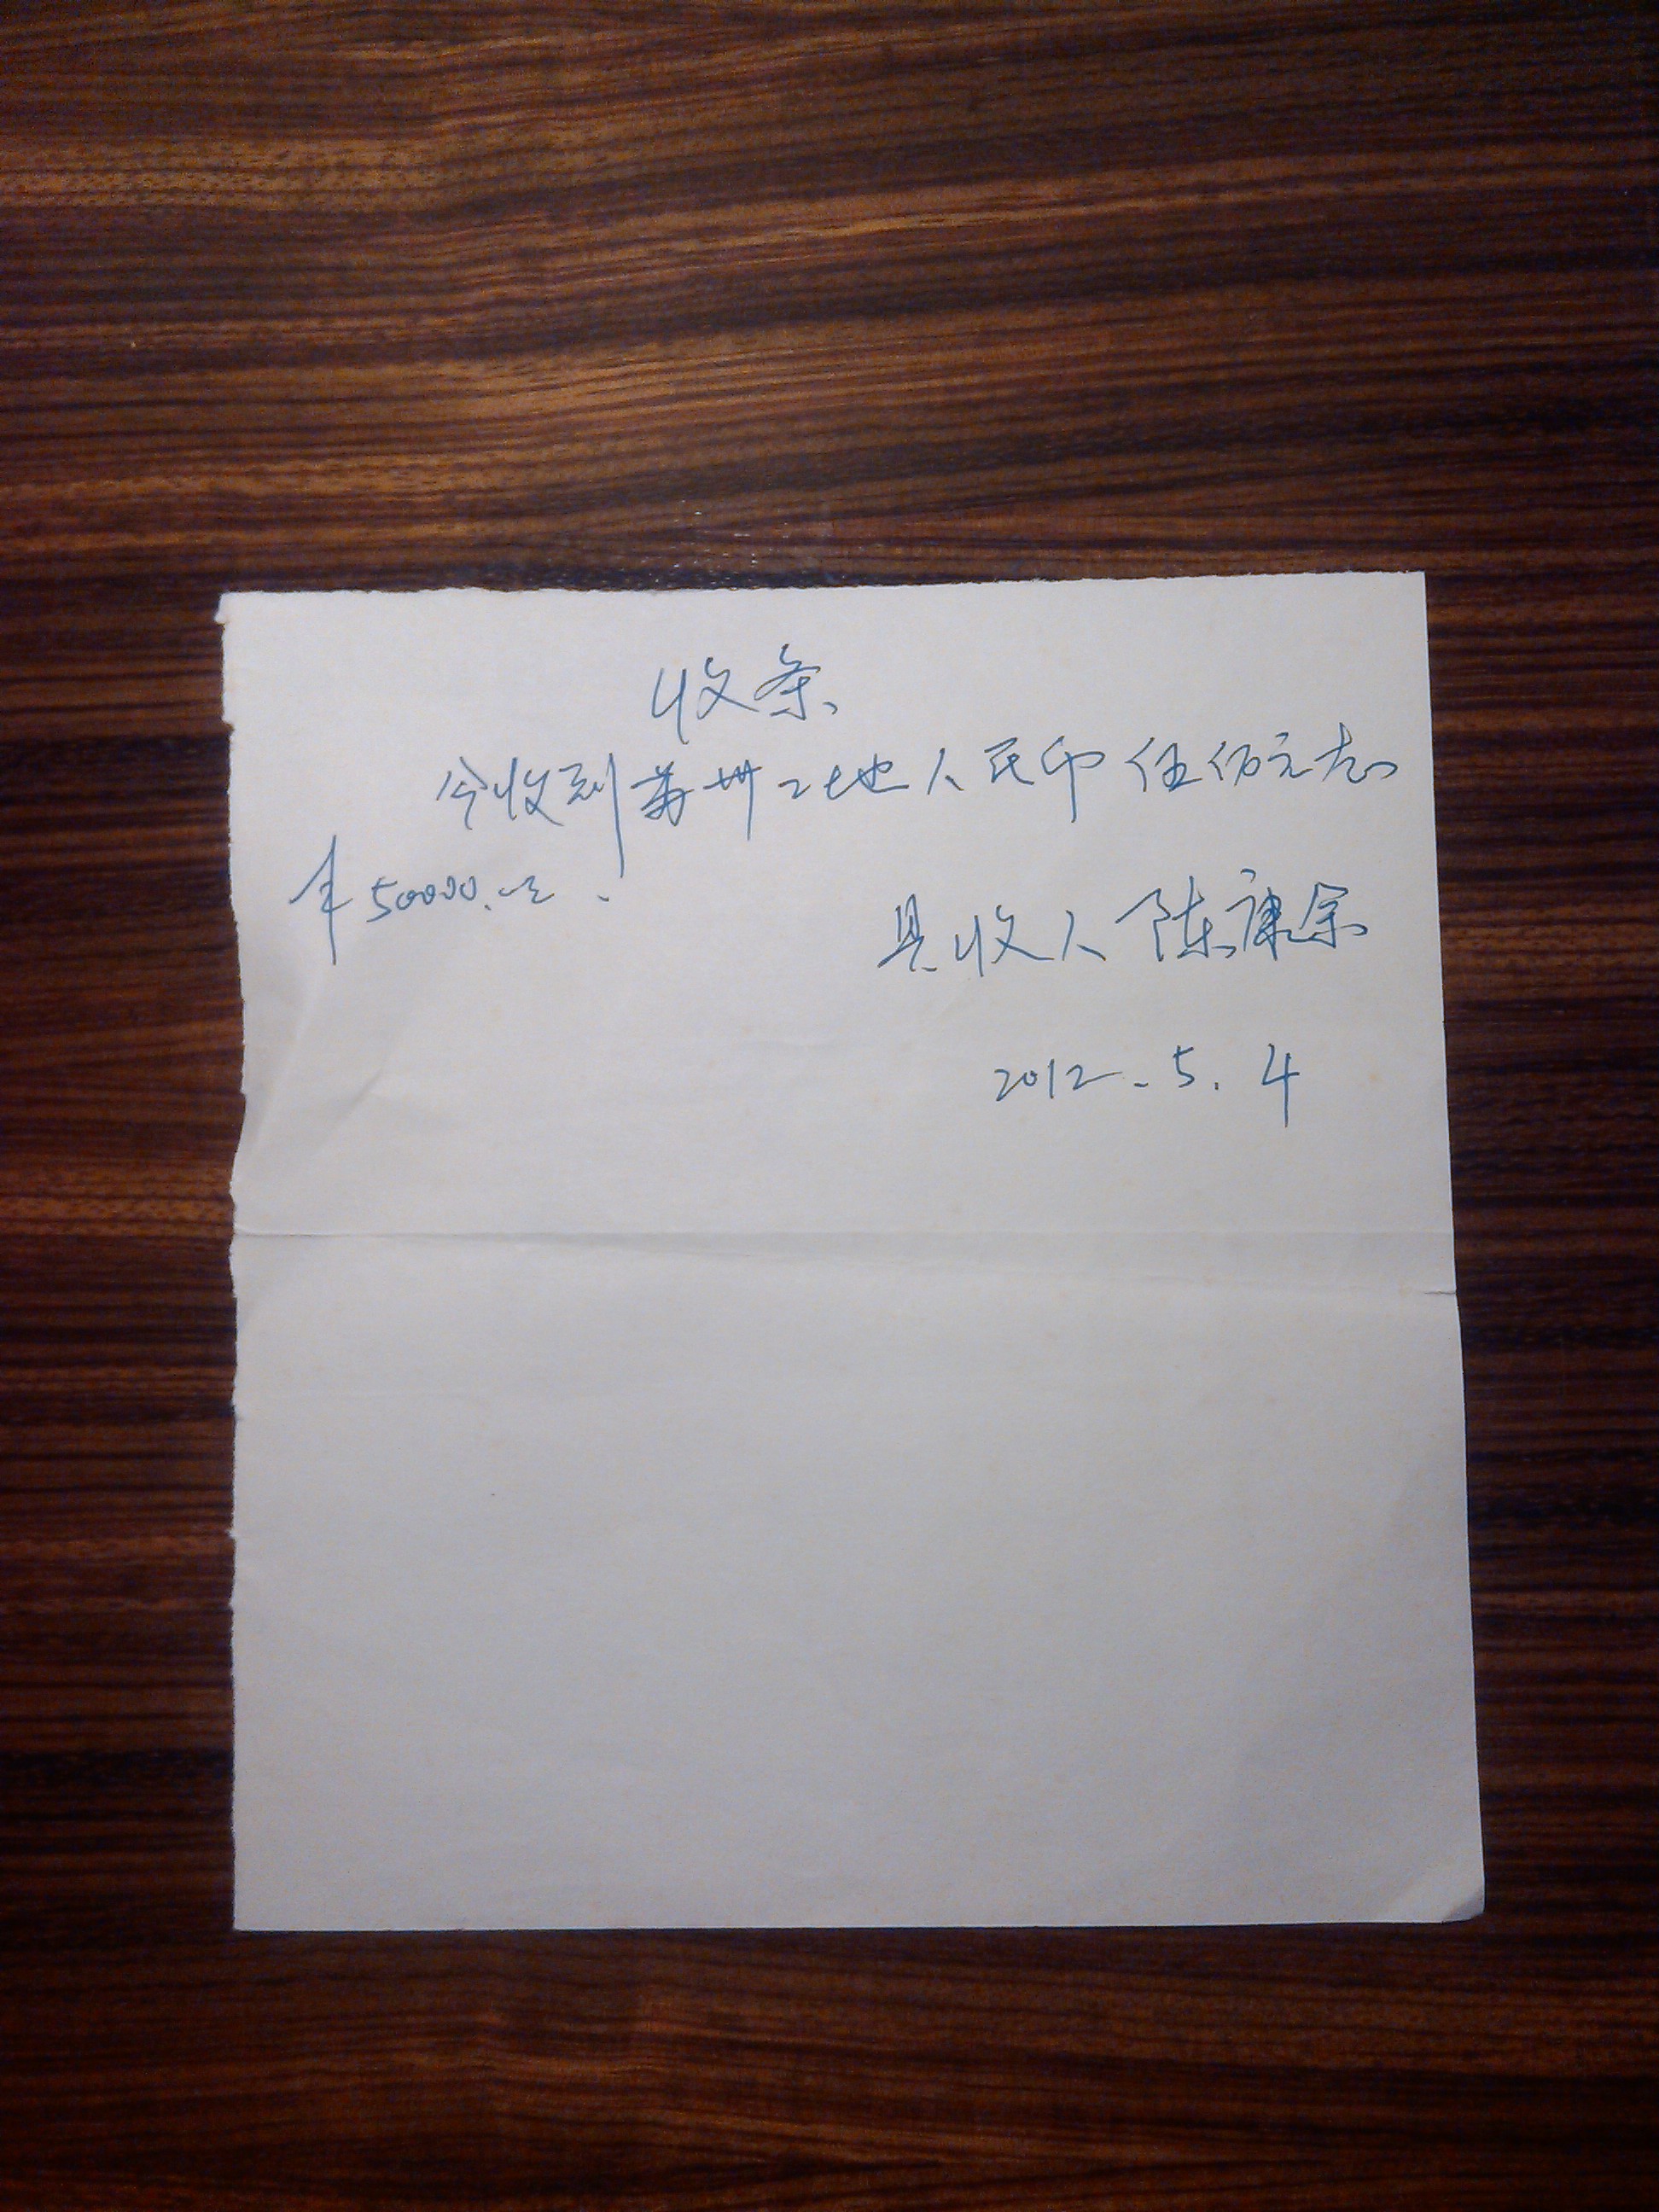 收条
今收到苏州工地人民币伍仟元志
¥50000.
具收人 陈康余
2012.5.4